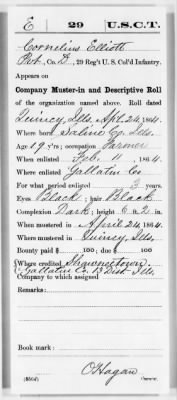 E 29 U.S.C.T.
Cornelius Elliott
Pvt., Co. D, 29 Reg't U. S. Col'd Infantry.
Appears on
Company Muster-in and Descriptive Roll
of the organization named above. Roll dated
Quincy, Ills. Apl. 24, 1864.
Where born Saline Co. Ills.
Age 19 y'rs; occupation Farmer
When enlisted Feb. 11, 1864.
Where enlisted Gallatin Co
For what period enlisted 3 years.
Eyes Black; hair Black
Complexion Dark; height 6 ft. 2 in.
When mustered in April 24, 1864.
Where mustered in Quincy, Ills.
Bounty paid $ 100; due $ 100
Where credited Shawneetown.
Gallatin Co. 13 Dist. Ills.
Company to which assigned
Remarks:
Book mark:
O'Hagan
Copyist.